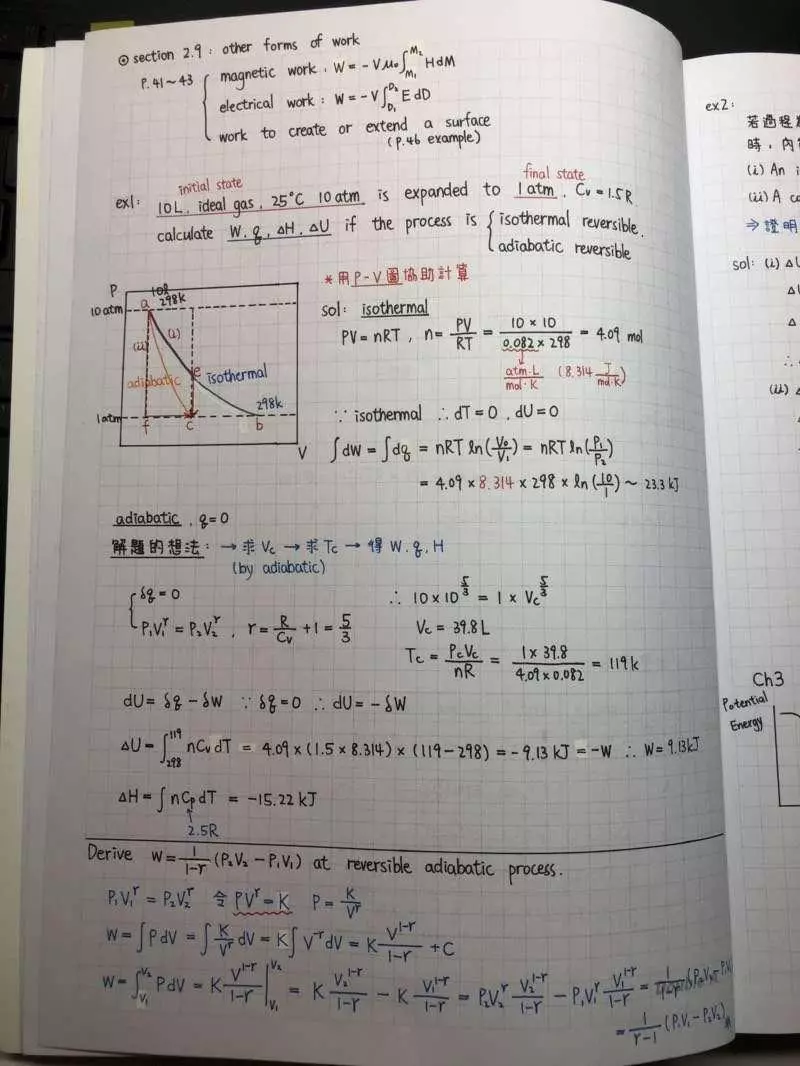 ⊙ section 2.9 : other forms of work
P.41~43
magnetic work . W = -Vμ₀∫_{M₁}^{M₂} H dM
electrical work : W = -V∫_{D₁}^{D₂} E dD
work to create or extend a surface
(P.46 example)
initial state
final state
ex1: 10L, ideal gas, 25°C 10 atm, is expanded to 1 atm. Cv = 1.5R
calculate W, q, ΔH, ΔU if the process is { isothermal reversible.
adiabatic reversible
P
10ℓ
a 298k
10 atm
(i)
(ii)
e
adiabatic
isothermal
298k
1 atm
f c b
V
*用P-V圖協助計算
sol: isothermal
PV = nRT , n = PV/RT = 10×10/0.082×298 = 4.09 mol
atm·L/mol·K (8.314 J/mol·K)
∵ isothermal ∴ dT = 0 , dU = 0
∫dW = ∫dq = nRT ln(V₂/V₁) = nRT ln(P₁/P₂)
= 4.09 × 8.314 × 298 × ln(10/1) ~ 23.3 kJ
adiabatic , q = 0
解題的想法: → 求 Vc → 求 Tc → 得 W. q. H
(by adiabatic)
δq = 0
P₁V₁^r = P₂V₂^r , r = R/Cv + 1 = 5/3
∴ 10×10^{5/3} = 1 × Vc^{5/3}
Vc = 39.8 L
Tc = PcVc/nR = 1×39.8/4.09×0.082 = 119k
dU = δq - δW ∵ δq = 0 ∴ dU = -δW
ΔU = ∫_{298}^{119} nCv dT = 4.09 × (1.5 × 8.314) × (119-298) = -9.13 kJ = -W ∴ W = 9.13kJ
ΔH = ∫ nCp dT = -15.22 kJ
2.5R
Derive W = 1/1-r (P₂V₂ - P₁V₁) at reversible adiabatic process.
P₁V₁^r = P₂V₂^r 令 PV^r = K P = K/V^r
W = ∫ PdV = ∫ K/V^r dV = K∫ V^{-r} dV = K V^{1-r}/1-r + C
W = ∫_{V₁}^{V₂} PdV = K V^{1-r}/1-r |_{V₁}^{V₂} = K V₂^{1-r}/1-r - K V₁^{1-r}/1-r = P₂V₂^r V₂^{1-r}/1-r - P₁V₁^r V₁^{1-r}/1-r =
= 1/r-1 (P₁V₁ - P₂V₂)
ex2:
若過程
時, 內
(i) An i
(ii) A co
⇒ 證明
sol: (i) ΔU
ΔU
Δ
∴
(ii) Δ
Ch3
Potential
Energy